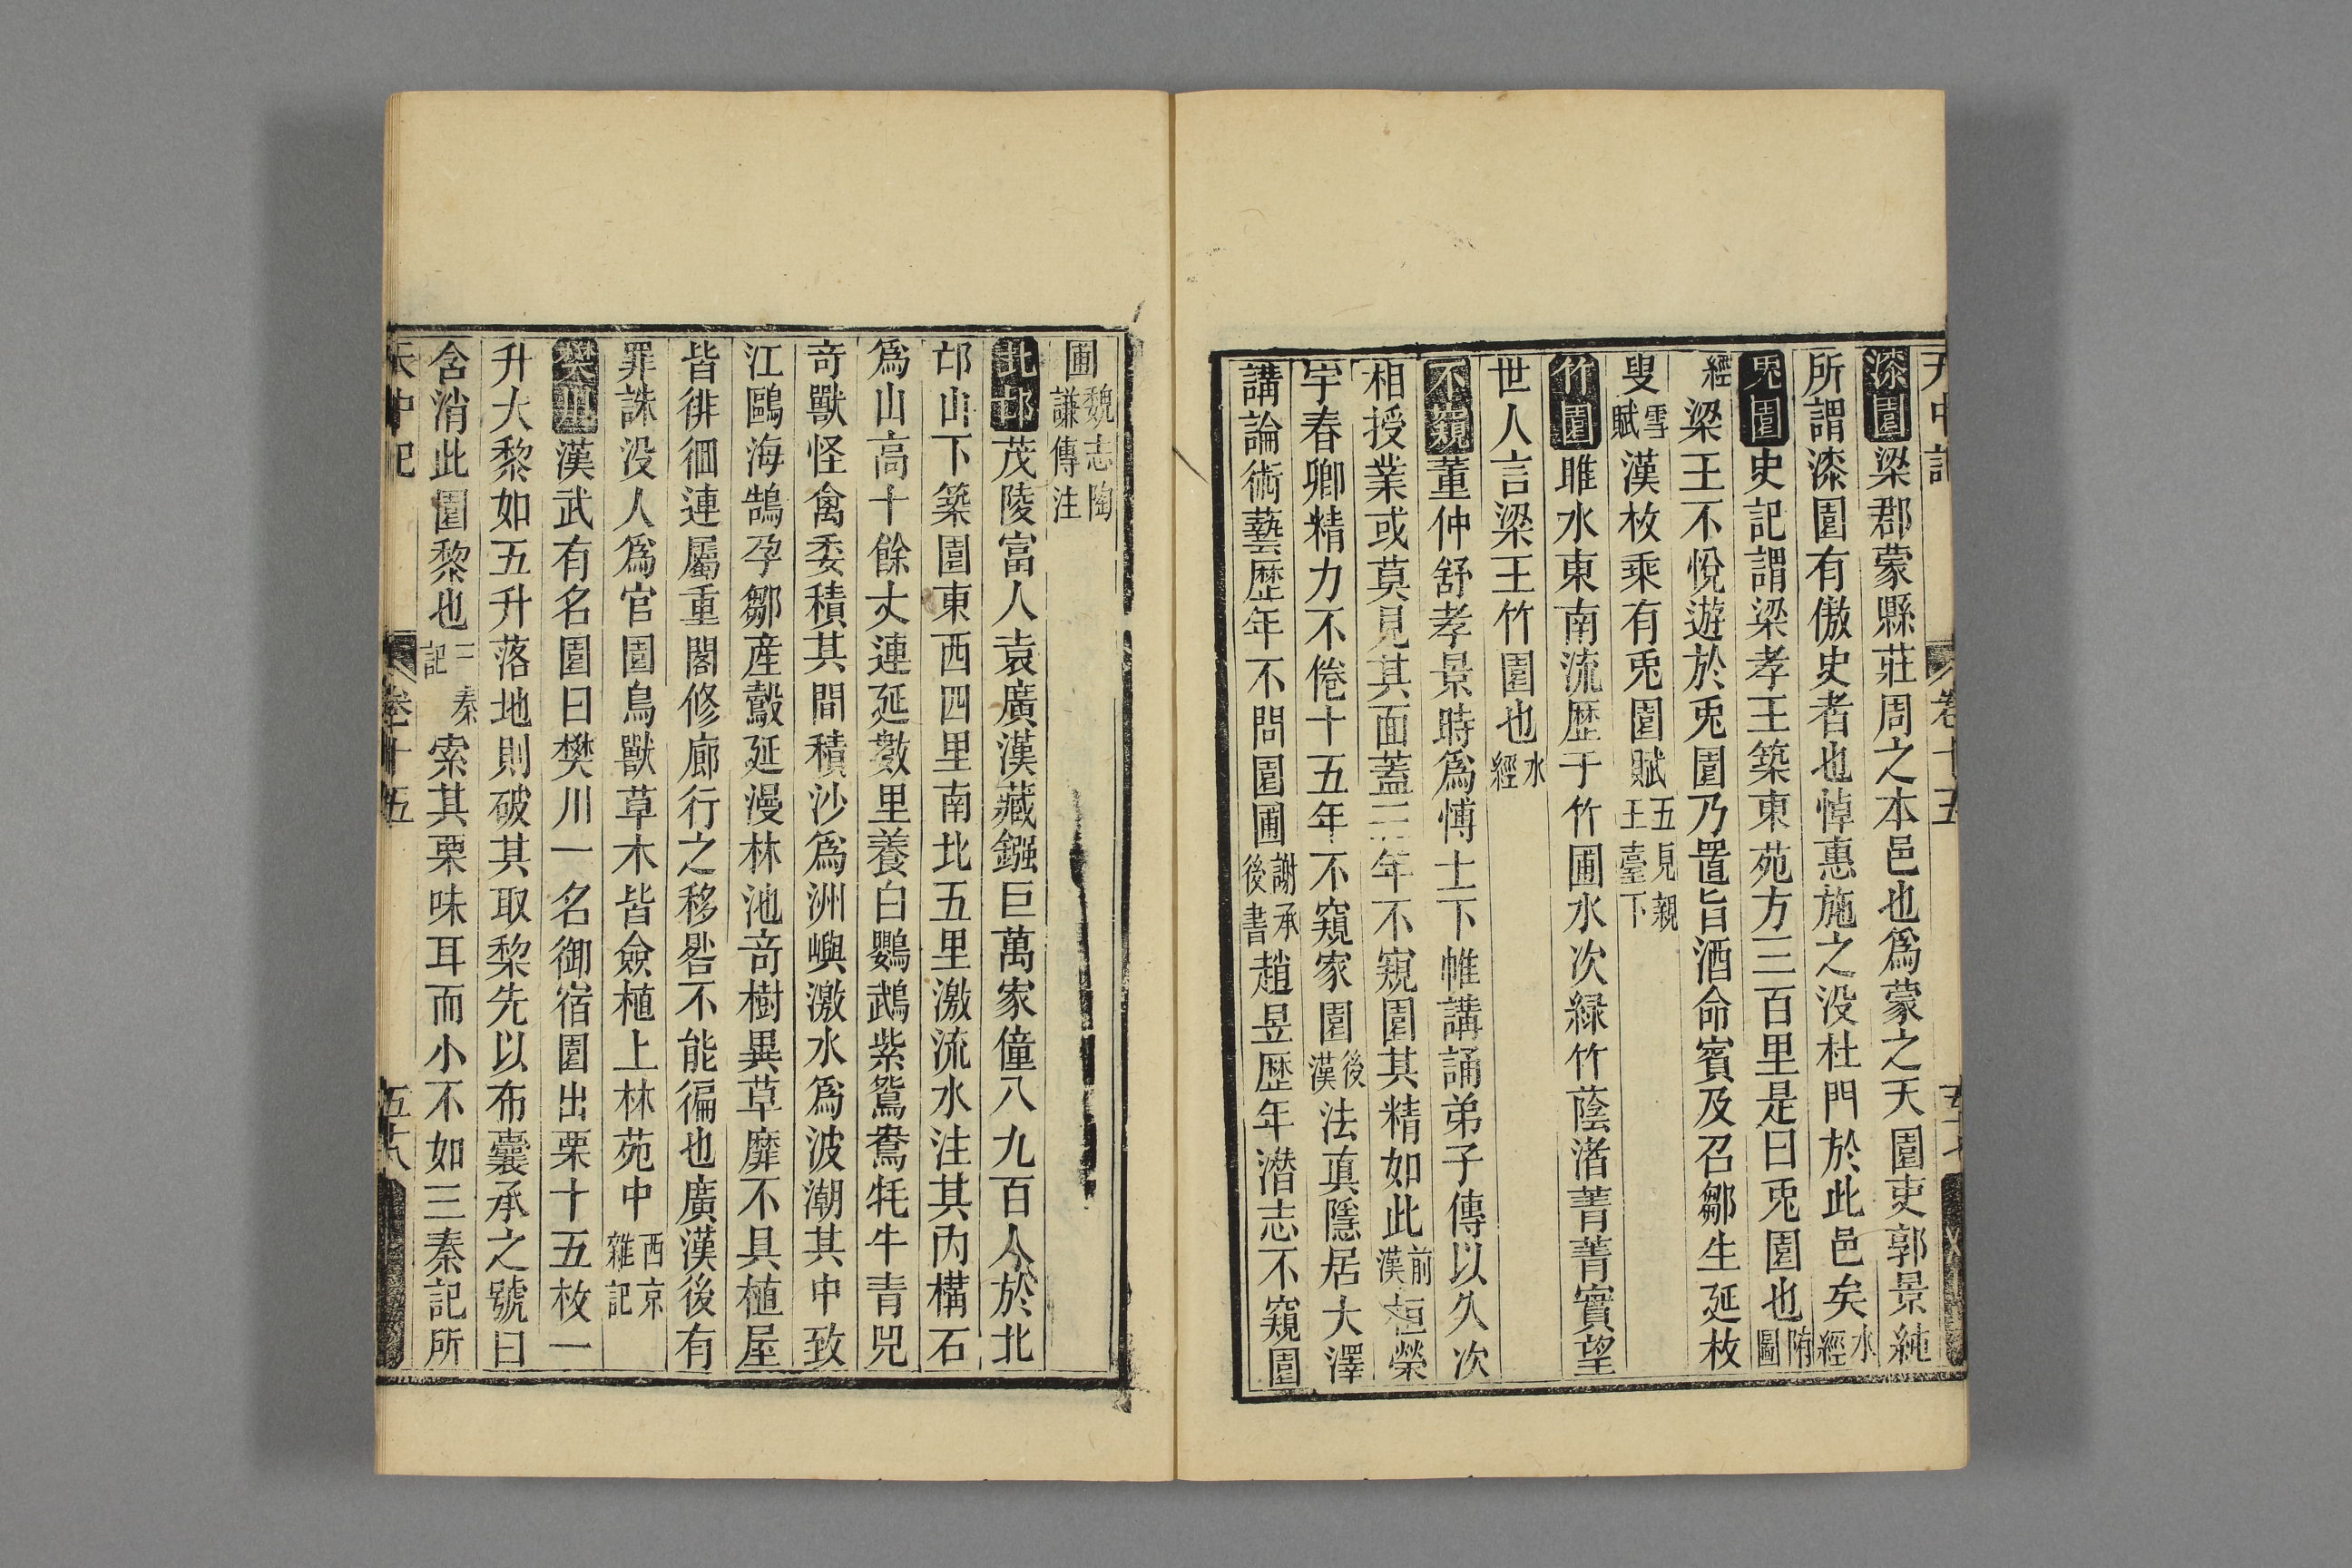 天中記 卷十五
漆園梁郡蒙縣莊周之本邑也爲蒙之天園吏郭景純
所謂漆園有傲史者也悼惠施之没杜門於此邑矣水經
兎園史記謂梁孝王築東苑方三百里是曰兎園也陏圖
經梁王不悅遊於兎園乃置旨酒命賓及召鄒生延枚
叟雪賦漢枚乘有兎園賦五見親王臺下
竹園睢水東南流歴于竹圃水次緑竹蔭渚菁菁實望
世人言梁王竹園也水經
不窺董仲舒孝景時爲博士下帷講誦弟子傳以久次
相授業或莫見其面葢三年不窺園其精如此前漢桓榮
字春卿精力不倦十五年不窺家園後漢法眞隱居大澤
講論術藝歴年不問園圃謝承後書趙昱歴年潛志不窺園
圃魏志陶謙傳注
北邙茂陵富人袁廣漢藏鏹巨萬家僮八九百人於北
邙山下築園東西四里南北五里激流水注其内構石
爲山高十餘丈連延數里養白鸚鵡紫鴛鴦牦牛青兕
竒獸怪禽委積其間積沙爲洲嶼激水爲波潮其中致
江鷗海鵠孕鶵産鷇延漫林池竒樹異草靡不具植屋
皆徘徊連屬重閣修廊行之移晷不能徧也廣漢後有
罪誅没人爲官園鳥獸草木皆僉植上林苑中西京雜記
樊川漢武有名園曰樊川一名御宿園出栗十五枚一
升大黎如五升落地則破其取棃先以布囊承之號曰
含消此園黎也三秦記索其栗味耳而小不如三秦記所
天中記 卷十五 五十八